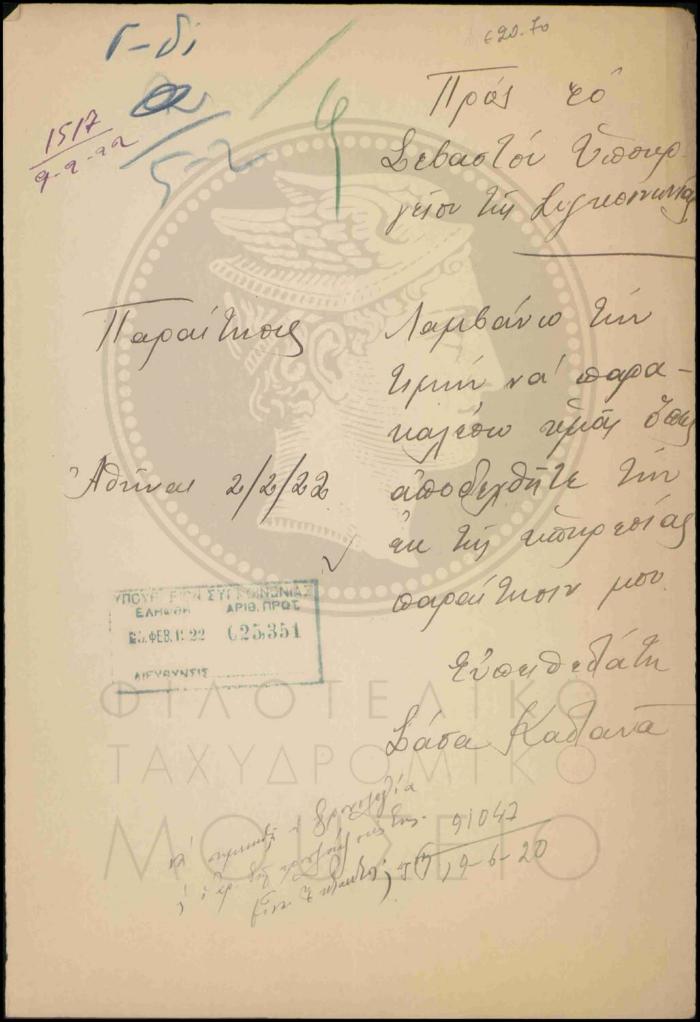 Γ-δι
620.70
1517
9-2-22
5-2
Πρὸς τὸ
Σεβαστὸν Ὑπουρ-
γεῖον τῆς Συγκοινωνίας
Παραίτησις
Λαμβάνω τὴν
τιμὴν νὰ παρα-
καλέσω ὑμᾶς ὅπως
Ἀθῆναι 2/2/22
ἀποδεχθῆτε τὴν
ἐκ τῆς ὑπηρεσίας
παραίτησιν μου
ΥΠΟΥΡΓΕΙΟΝ ΣΥΓΚΟΙΝΩΝΙΑΣ
ΕΛΗΦΘΗ ΑΡΙΘ. ΠΡΩΤ
25. ΦΕΒ. 1922 025,351
ΔΙΕΥΘΥΝΣΙΣ
Εὐπειθεστάτη
ΦΙΛΟΤΕΛΙΚΟ
ΤΑΧΥΔΡΟΜΙΚΟ
ΜΟΥΣΕΙΟ
91047
9-6-20